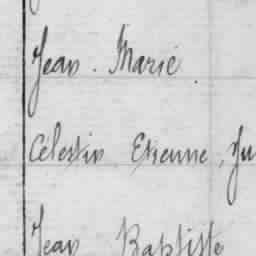 Jean. Marie.
Célestin Etienne, Ju
Jean Baptiste